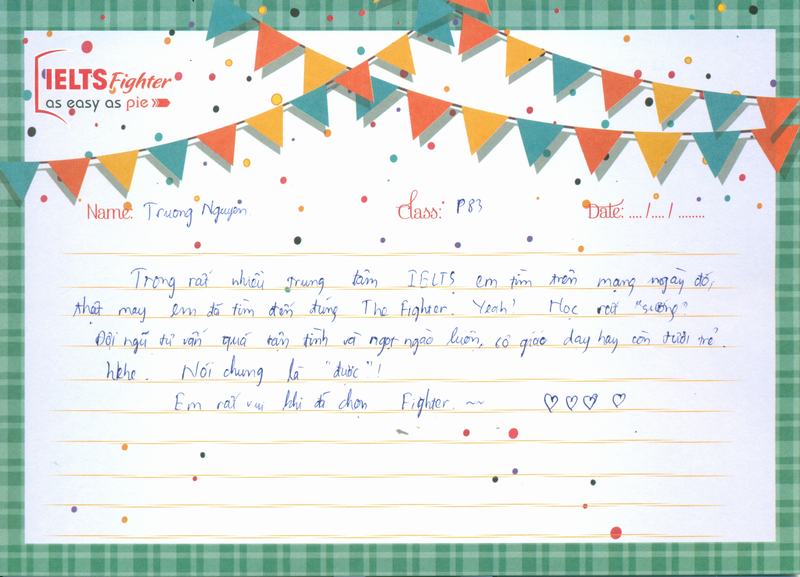 IELTS Fighter
as easy as pie
Name: Trương Nguyên Class: P83 Date: .... /.... / ........
Trong rất nhiều trung tâm IELTS em tìm trên mạng ngày đó,
thật may em đã tìm đến đúng The Fighter. Yeah! Học rất "sướng".
Đội ngũ tư vấn quá tận tình và ngọt ngào luôn, cô giáo dạy hay còn tươi trẻ.
hehe. Nói chung là "được"!
Em rất vui khi đã chọn Fighter. ~~ ♡♡♡ ♡